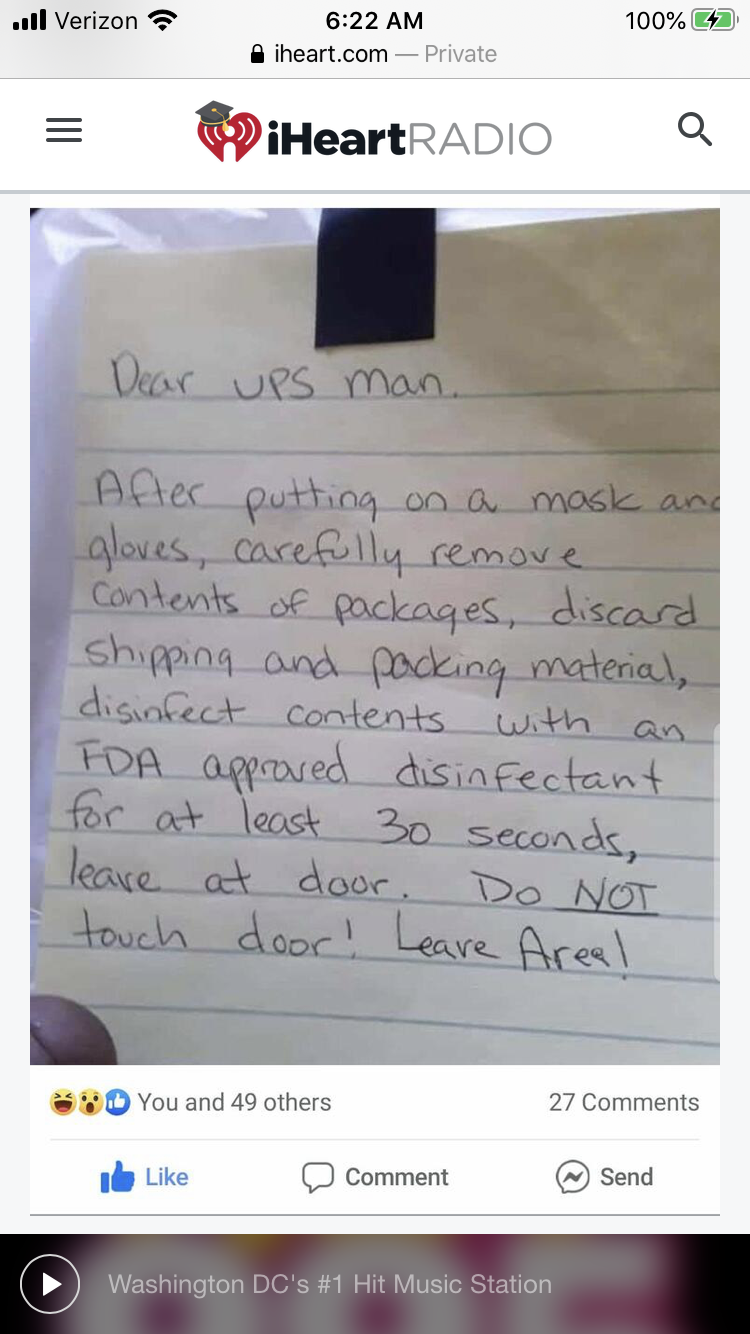 Verizon 6:22 AM 100%
iheart.com — Private
iHeartRADIO
Dear UPS man.
After putting on a mask and
gloves, carefully remove
contents of packages, discard
shipping and packing material,
disinfect contents with an
FDA approved disinfectant
for at least 30 seconds,
leave at door. Do NOT
touch door! Leave Area!
You and 49 others 27 Comments
Like Comment Send
Washington DC's #1 Hit Music Station